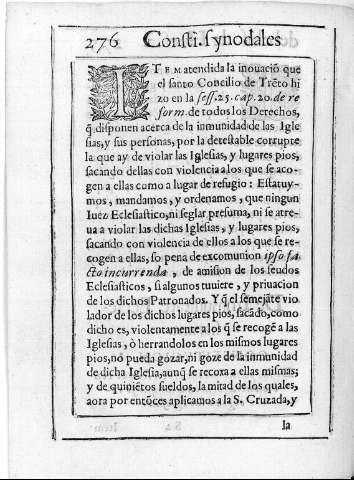 276 Consti. synodales
ITEM atendida la inouació que
el santo Concilio de Trẽto hi
zo en la sess. 25. cap. 20. de re
form. de todos los Derechos,
q̃ disponen acerca de la inmunidad de las Igle
sias, y sus personas, por la detestable corrupte
la que ay de violar las Iglesias, y lugares pios,
sacando dellas con violencia a los que se aco-
gen a ellas como a lugar de refugio: Estatuy-
mos, mandamos, y ordenamos, que ningun
Iuez Eclesiastico, ni seglar presuma, ni se atre-
ua a violar las dichas Iglesias, y lugares pios,
sacando con violencia de ellos a los que se re-
cogen a ellas, so pena de excomunion ipso fa
cto incurrenda, de amision de los feudos
Eclesiasticos, si algunos tuuiere, y priuacion
de los dichos Patronados. Y q̃ el semejãte vio
lador de los dichos lugares pios, sacãdo, como
dicho es, violentamente a los q̃ se recogẽ a las
Iglesias, ò herrandolos en los mismos lugares
pios, no pueda gozar, ni goze de la inmunidad
de dicha Iglesia, aunq̃ se recoxa a ellas mismas;
y de quiniẽtos sueldos, la mitad de los quales,
aora por entõces aplicamos a la S. Cruzada, y
la